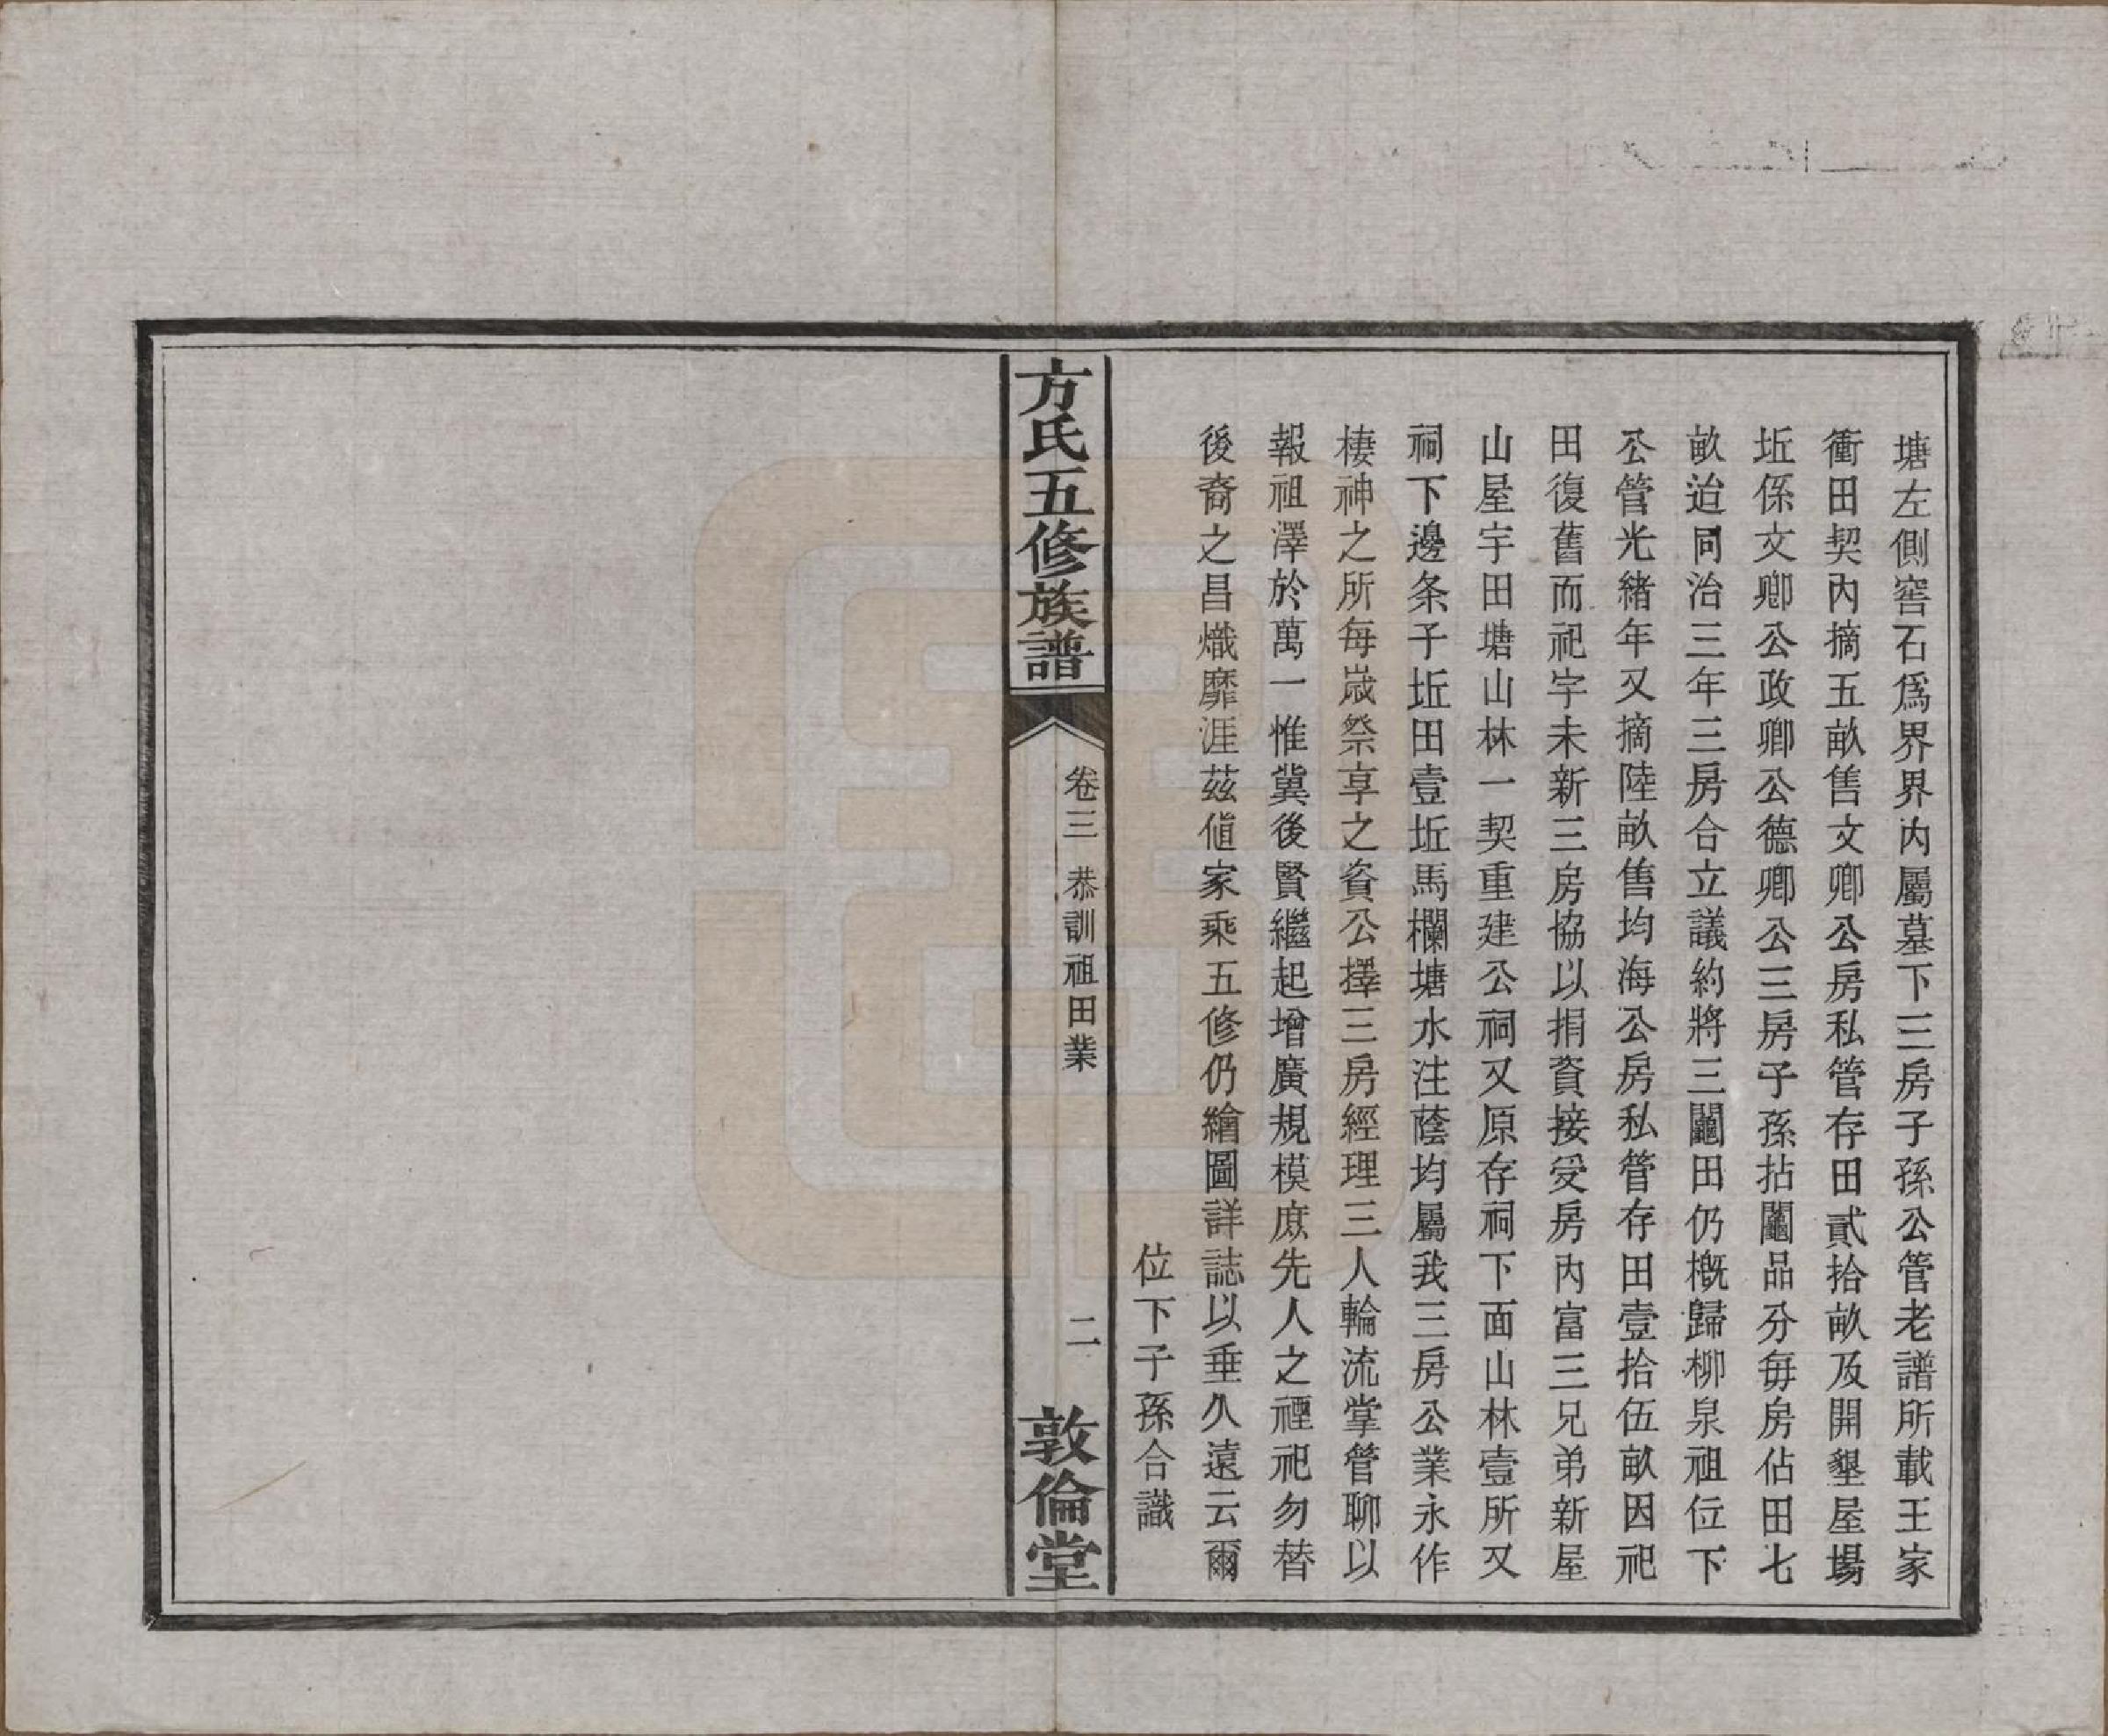 塘左側窖石爲界界內屬墓下三房子孫公管老譜所載王家
衝田契內摘五畝售文卿公房私管存田貳拾畝及開墾屋場
坵係文卿公政卿公德卿公三房子孫拈鬮品分每房佔田七
畝迨同治三年三房合立議約將三鬮田仍概歸柳泉祖位下
公管光緒年又摘陸畝售均海公房私管存田壹拾伍畝因祀
田復舊而祀宇未新三房協以捐資接受房內富三兄弟新屋
山屋宇田塘山林一契重建公祠又原存祠下面山林壹所又
祠下邊条子坵田壹坵馬欄塘水注蔭均屬我三房公業永作
棲神之所每歲祭享之資公擇三房經理三人輪流掌管聊以
報祖澤於萬一惟冀後賢繼起增廣規模庶先人之禋祀勿替
後裔之昌熾靡涯茲値家乘五修仍繪圖詳誌以垂久遠云爾
位下子孫合識
方氏五修族譜
卷三 恭訓祖田業
二
敦倫堂